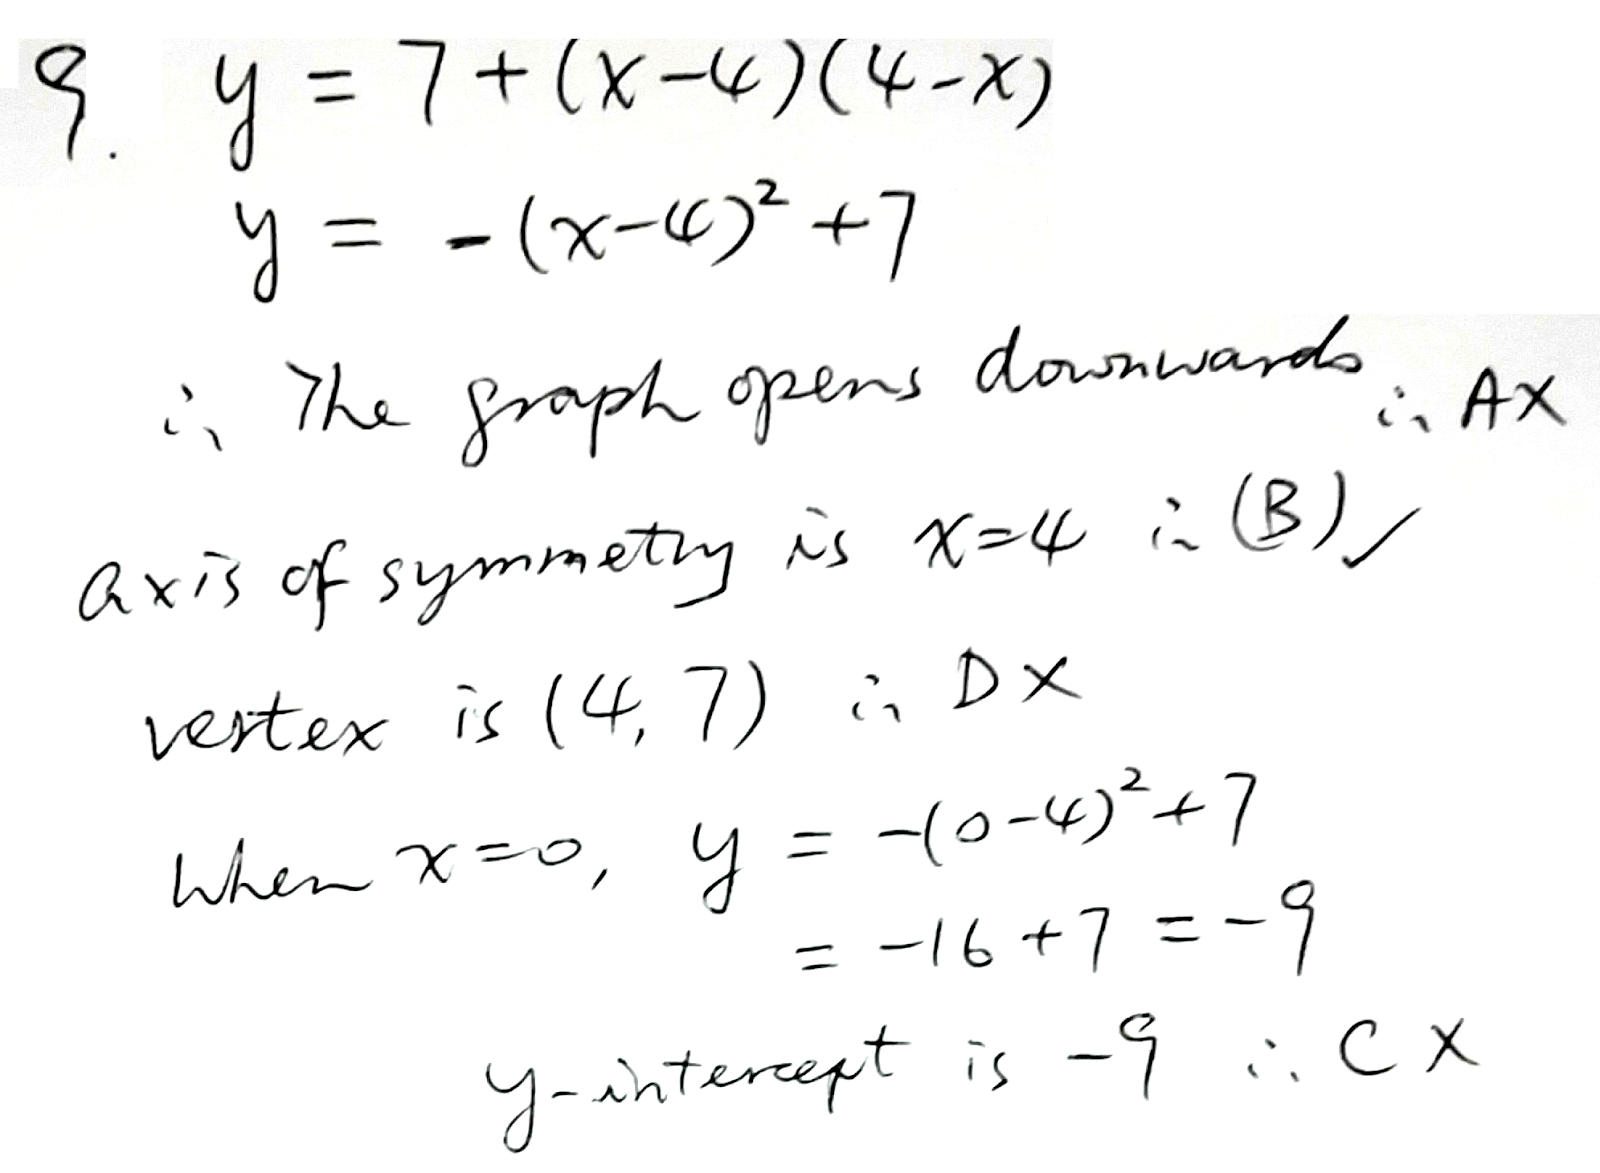 9. y = 7 + (x-4)(4-x)
y = -(x-4)² + 7
∴ The graph opens downwards ∴ A ✗
axis of symmetry is x=4 ∴ (B) ✓
vertex is (4, 7) ∴ D ✗
When x=0, y = -(0-4)² + 7
= -16 + 7 = -9
y-intercept is -9 ∴ C ✗